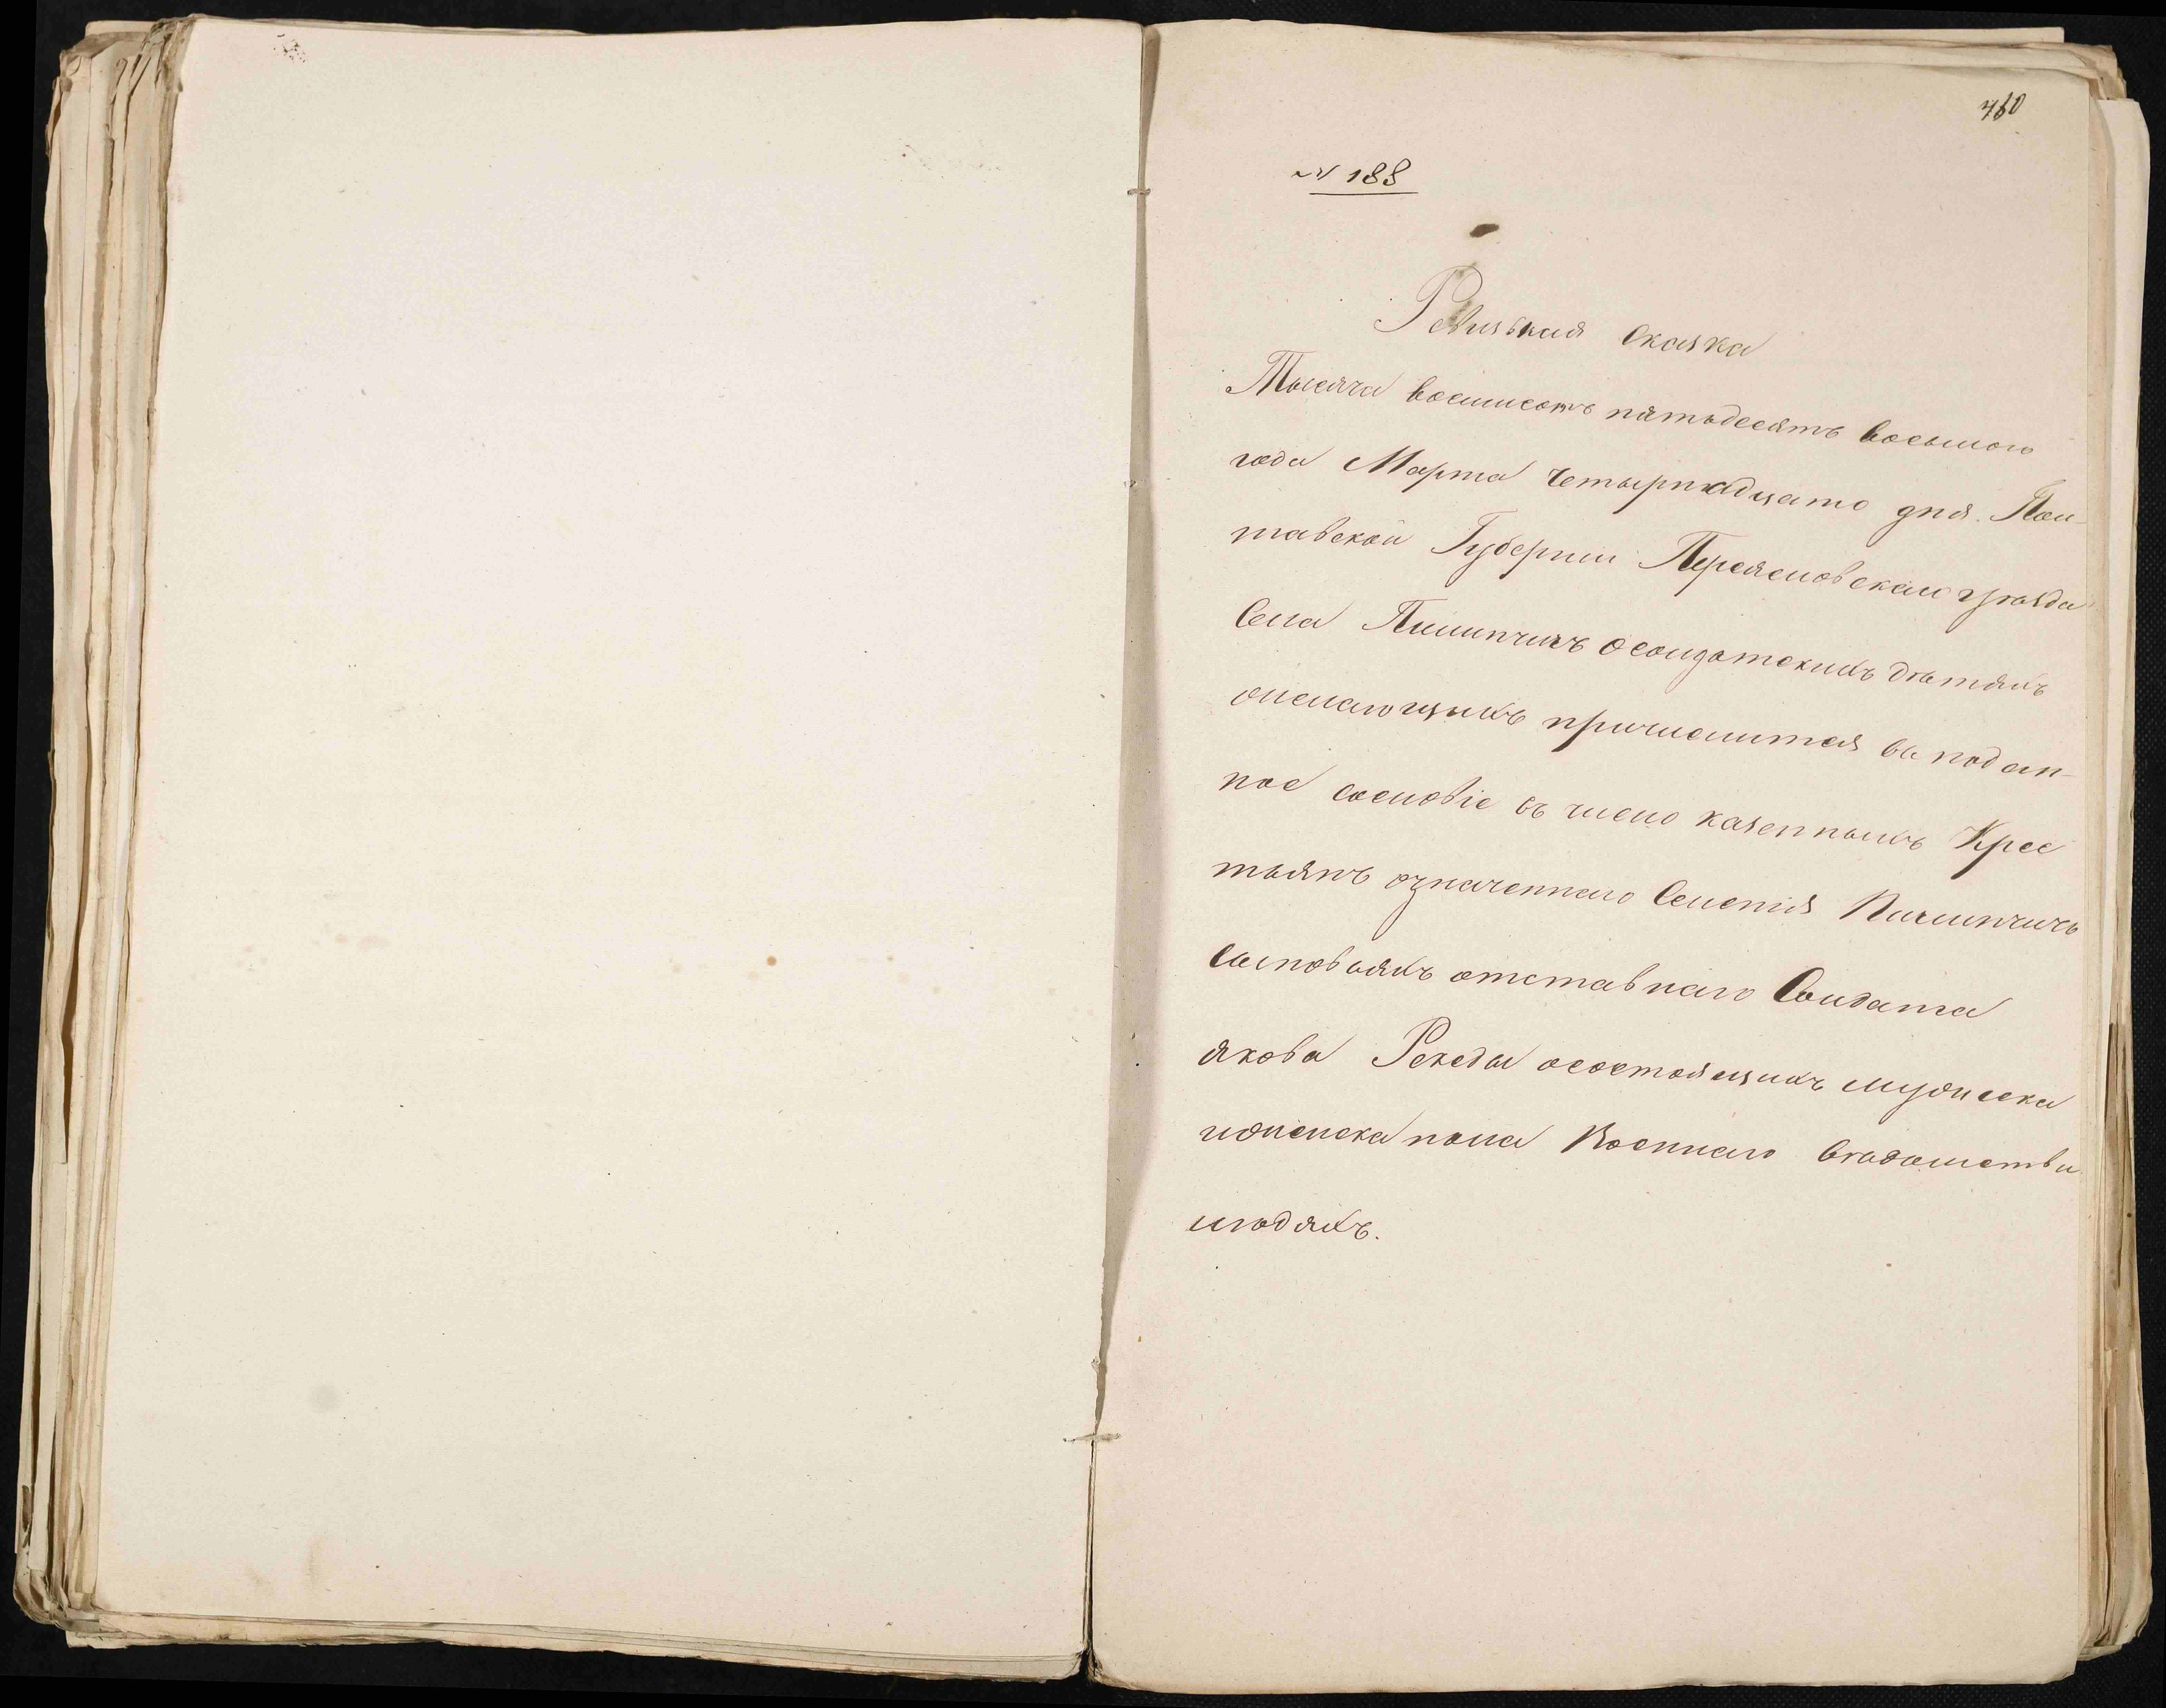 460
№ 188
Ревизская сказка
Тысяча восемьсотъ пятьдесятъ восьмого
года Марта четырнадцато дня. Пол-
тавской Губернии Переясловскаго уѣзда
Села Пилипчичъ о солдатскихъ дѣтяхъ
желающихъ причислится въ подат-
ное сословіе въ число казенныхъ Крес
тьянъ означеннаго Селенія Пилипчичъ
Сыновьяхъ отставнаго Солдата
Якова Рекеды о состоящихъ мужеска
и женска пола Военнаго Вѣдомства
людяхъ.